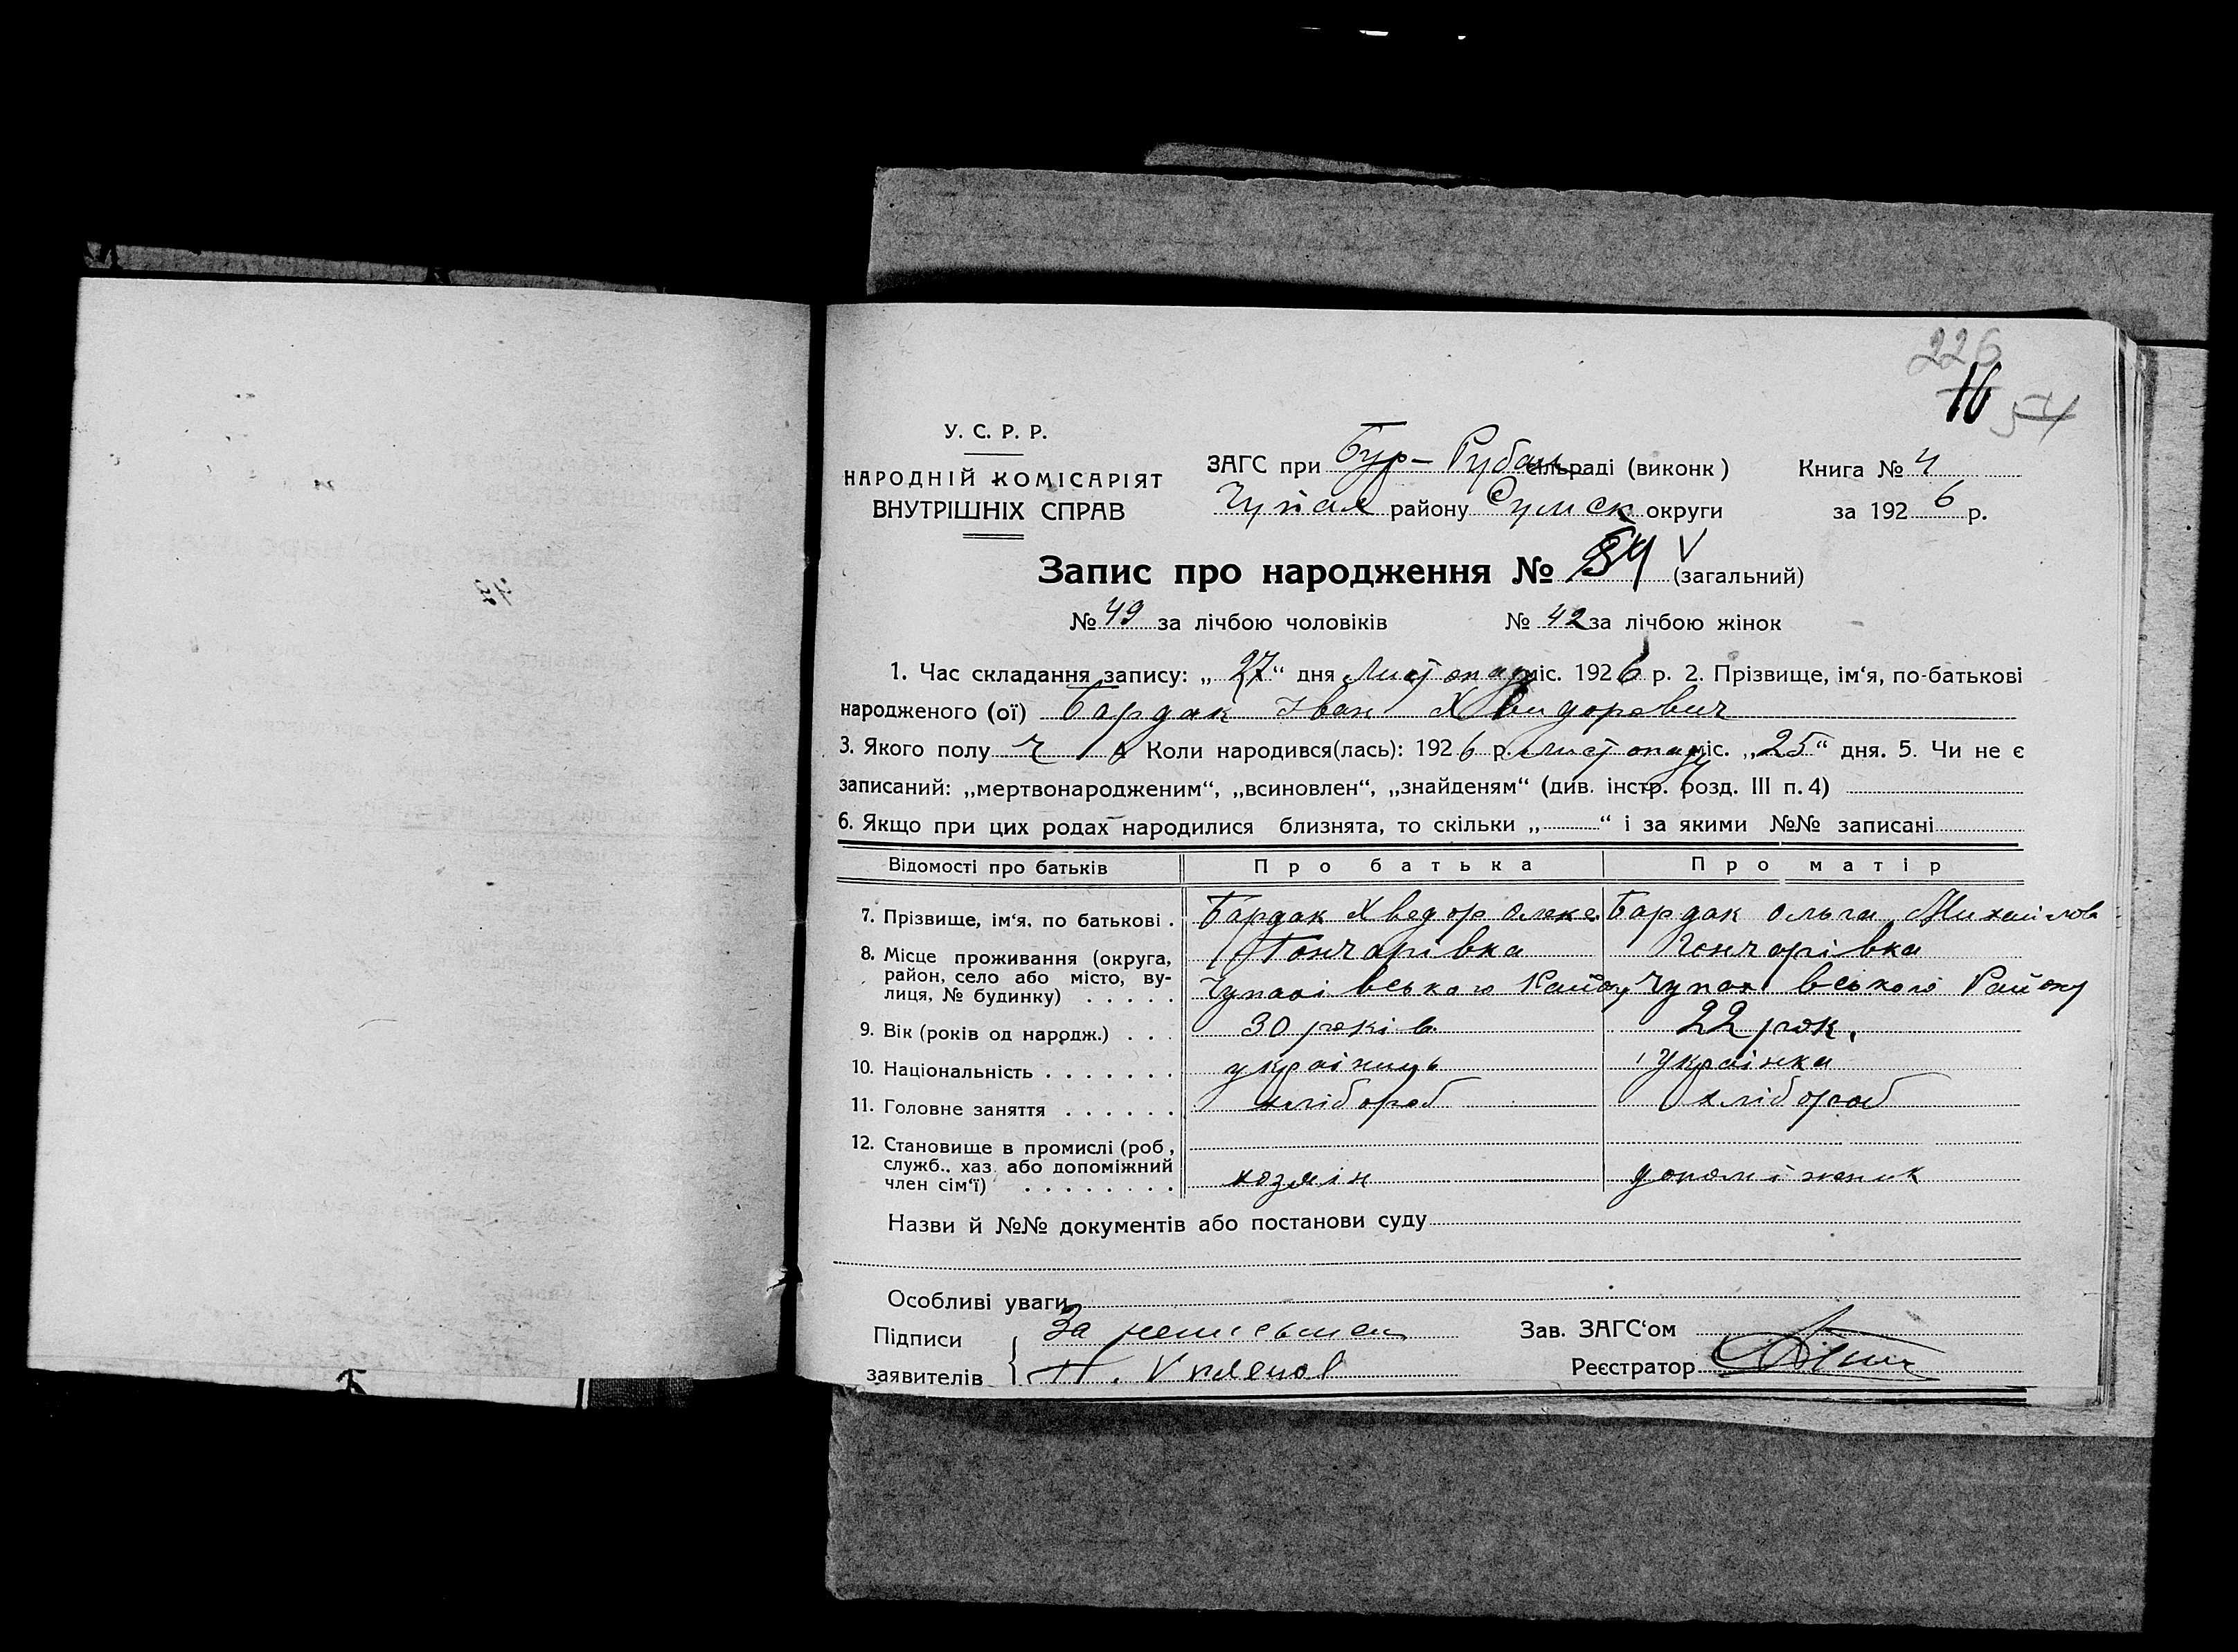 226
16 54
У. С. Р. Р.
НАРОДНІЙ КОМІСАРІЯТ
ВНУТРІШНІХ СПРАВ
ЗАГС при Бур-Рубан сільраді (виконк)
Книга № 4
Чупах району Сумск округи
за 1926 р.
Запис про народження № 54 (загальний)
№ 49 за лічбою чоловіків № 42 за лічбою жінок
1. Час складання запису: „27“ дня Листопад міс. 1926 р. 2. Прізвище, ім‘я, по-батькові
народженого (ої) Бардак Іван Хвидорович
3. Якого полу ч 4 Коли народився(лась): 1926 р. Листопад міс. „25“ дня. 5. Чи не є
записаний: „мертвонародженим“, „всиновлен“, „знайденям“ (див. інстр. розд. III п. 4)
6. Якщо при цих родах народилися близнята, то скільки „ “ і за якими №№ записані
Відомості про батьків Про батька Про матір
7. Прізвище, ім‘я, по батькові . Бардак Хведор Олекс. Бардак Ольга Михайлова
8. Місце проживання (округа, Гончарівка Гончарівка
район, село або місто, ву-
лиця, № будинку) . . . . . Чупахівського Району Чупахівського Району
9. Вік (років од народж.) . . . 30 років 22 рок.
10. Національність . . . . . . . українець українка
11. Головне заняття . . . . . . хлібороб хлібороб
12. Становище в промислі (роб,
служб., хаз. або допоміжний
член сім‘ї) . . . . . . . . хозяін допоміжник
Назви й №№ документів або постанови суду
Особливі уваги
Підписи
заявителів
За
Зав. ЗАГС‘ом
Реєстратор